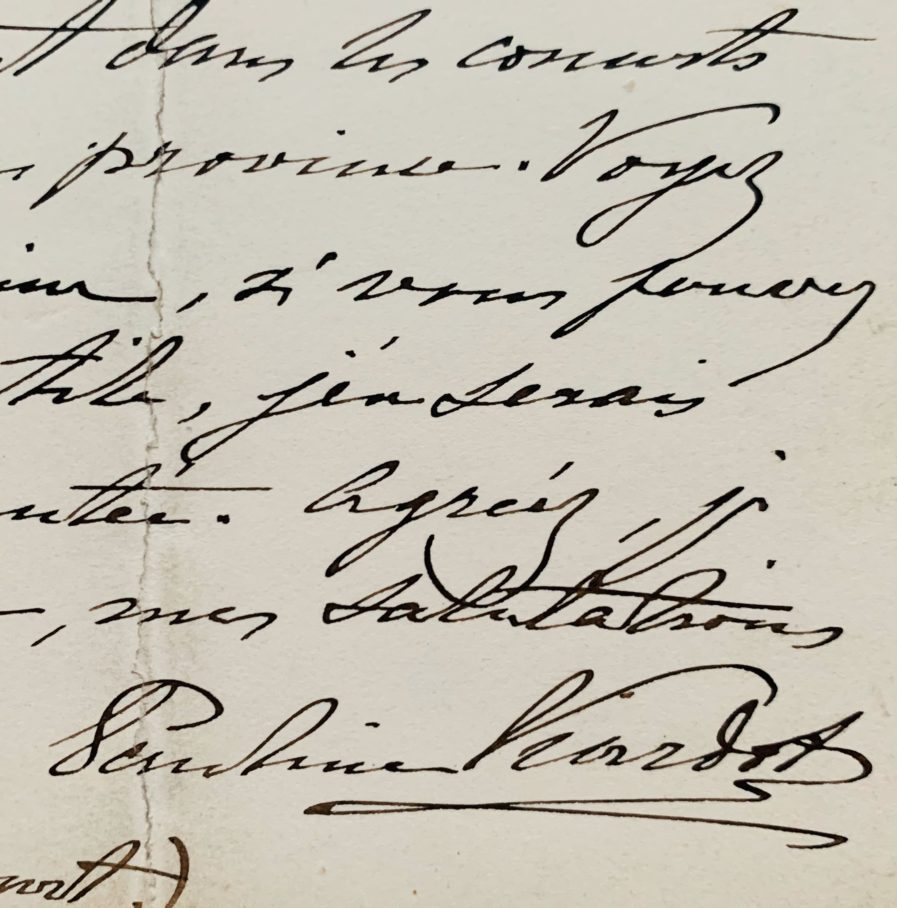 dans les concerts
province. Voyez
, si vous pouvez
, j'en serais
. Agréez, je
, mes salutations
Pauline Viardot